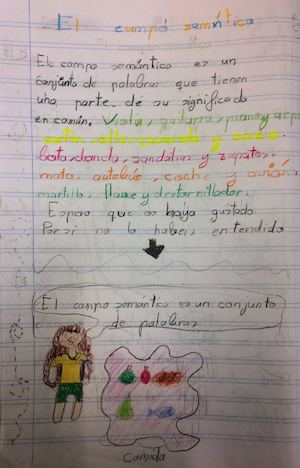 El campo semántico
El campo semántico es un
conjunto de palabras que tienen
una parte de su significado
en común. Viola, guitarra, piano y arpa
sartén, olla, y cazo.
bota, chancla, sandalias y zapatos.
moto, autobús, coche y avión.
martillo, llave y destornillador.
Espero que os haya gustado
Por si no lo habeis entendido
El campo semántico es un conjunto
de palabras
Comida